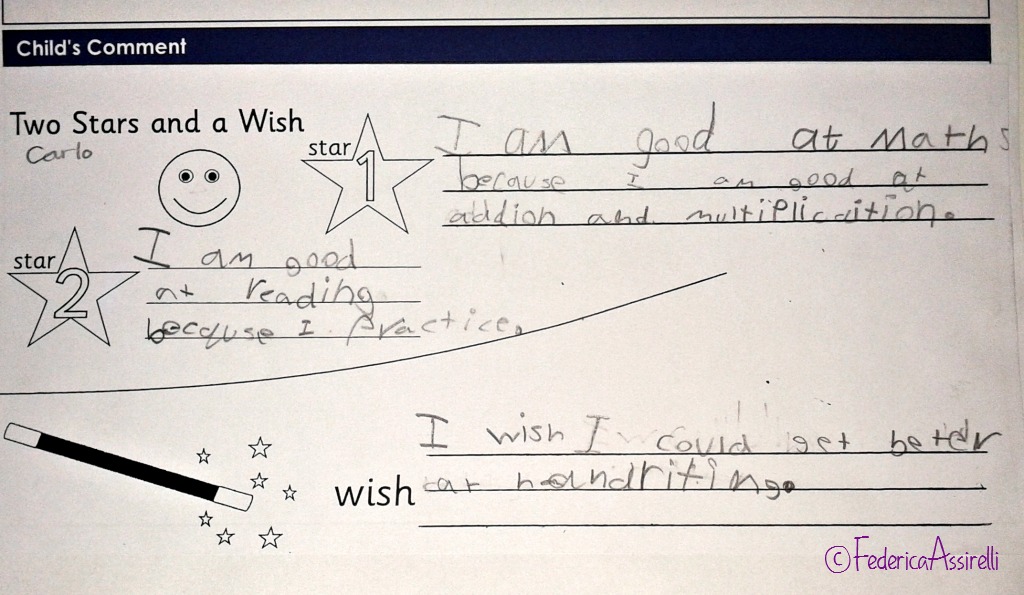 Child's Comment
Two Stars and a Wish
Carlo
star 1
I am good at Maths
because I am good at
addion and multiplicaition.
star 2
I am good
at reading
because I practice.
wish
I wish I could get beter
at handriting.
©FedericaAssirelli